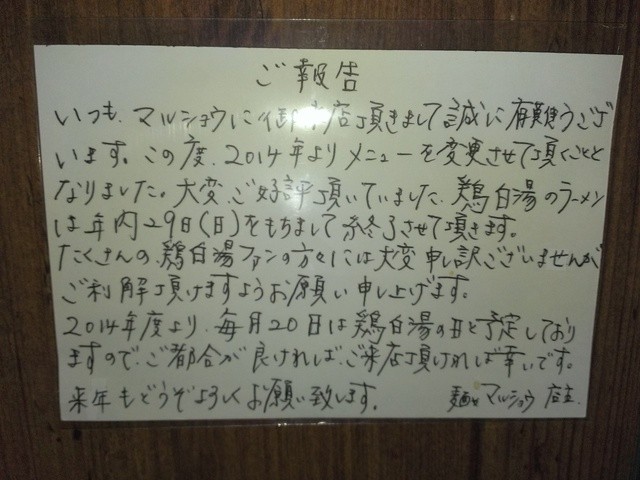 ご報告
いつも、マルショウに御来店頂きまして誠に有難うござ
います。この度、2014年よりメニューを変更させて頂くことと
なりました。大変、ご好評頂いていました、鶏白湯のラーメン
は年内29日(日)をもちまして終了させて頂きます。
たくさんの、鶏白湯ファンの方々には大変申し訳ございませんが
ご利解頂けますようお願い申し上げます。
2014年度より、毎月20日は鶏白湯の日と予定しており
ますので、ご都合が良ければ、ご来店頂ければ幸いです。
来年もどうぞよろしくお願い致します。 麺や マルショウ 店主